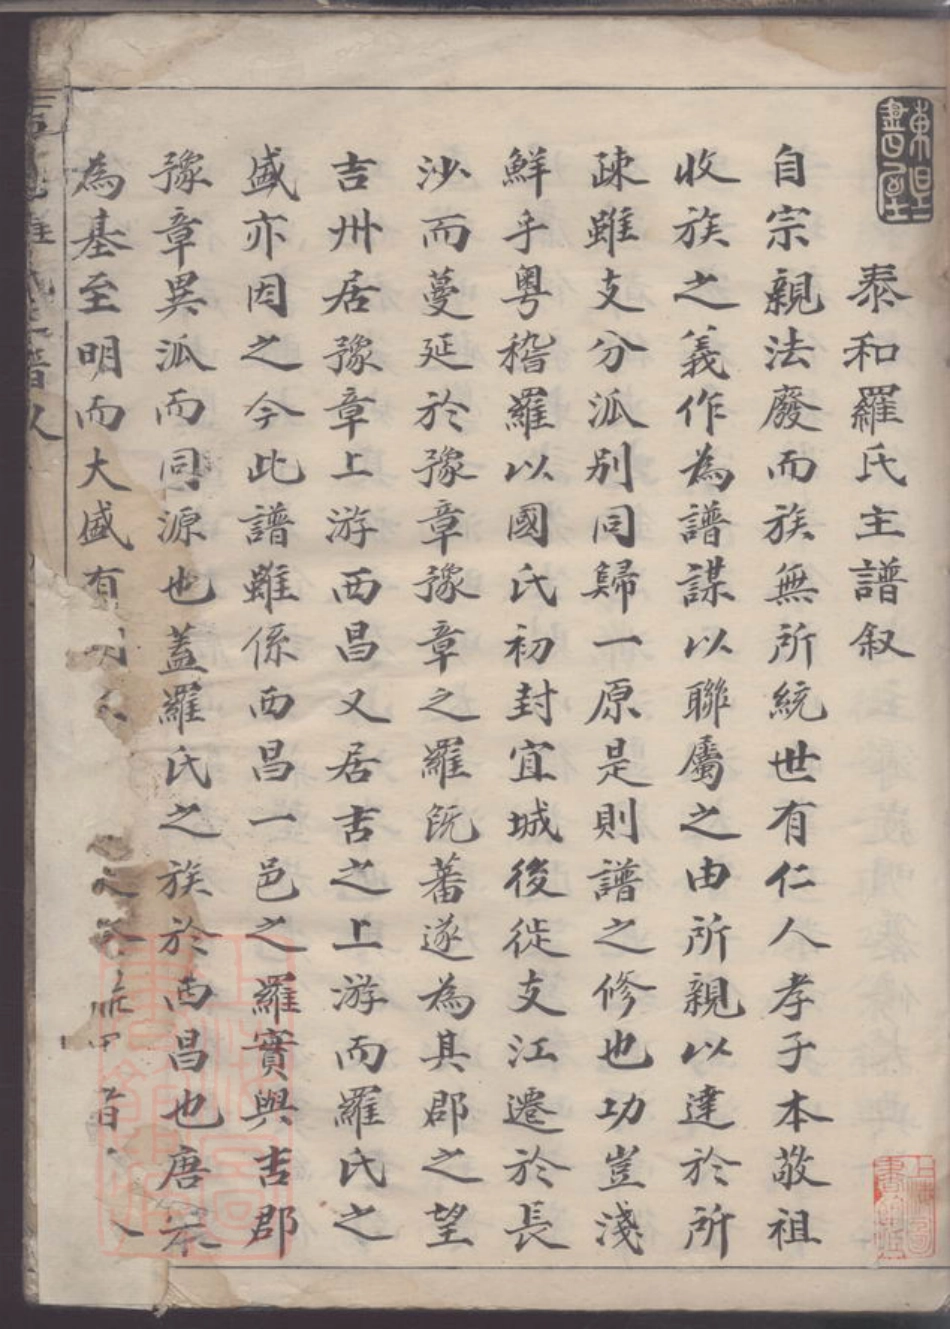 泰和羅氏主譜叙
自宗親法廢而族無所統世有仁人孝子本敬祖
收族之義作為譜諜以聯屬之由所親以達於所
疎雖支分派別同歸一原是則譜之修也功豈淺
鮮乎粤稽羅以國氏初封宜城後徙支江遷於長
沙而蔓延於豫章豫章之羅旣蕃遂為其郡之望
吉州居豫章上游西昌又居吉之上游而羅氏之
盛亦因之今此譜雖係西昌一邑之羅實與吉郡
豫章異派而同源也蓋羅氏之族於西昌也唐宋
為基至明而大盛有明